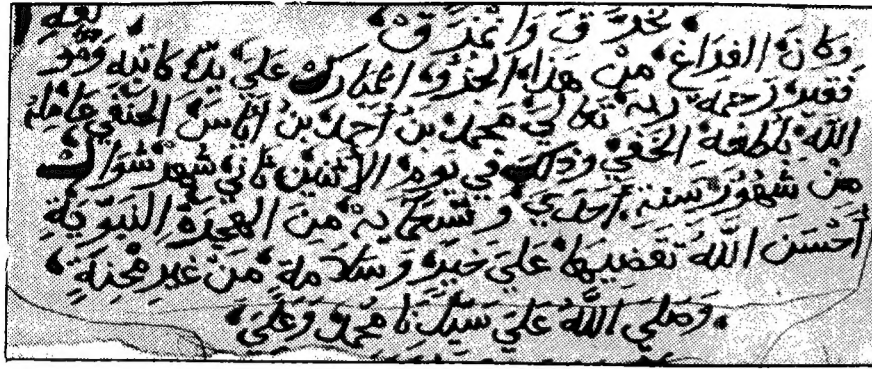 تخرق وانمزق
وكان الفراغ من هذا الجزو المبارك على يد كاتبه وهو
فقير رحمة ربه تعالي محمد بن أحمد بن أناس الحنفي عامله
الله بلطفه الخفي وذلك في يوم الاثنين ثاني شهر شوال
من شهور سنة أحدي وتسعماية من الهجرة النبوية
أحسن الله تقضيها علي خير وسلامة من غير محنة
وصلي الله علي سيدنا محمد وعلي